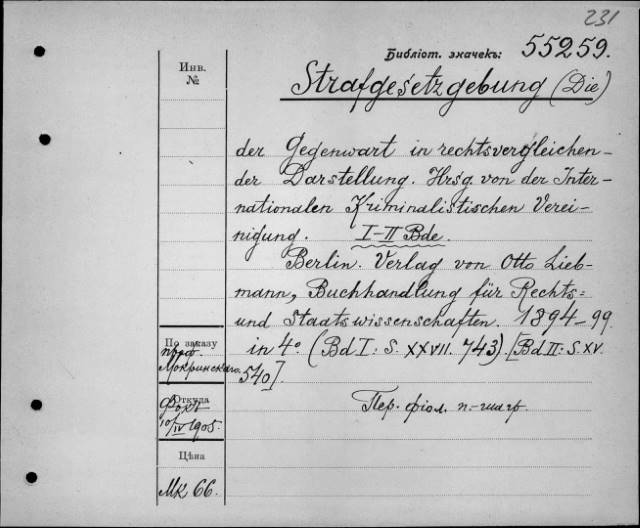 231
Библіот. значекъ: 55259.
Инв.
№
Strafgesetzgebung (Die)
der Gegenwart in rechtsvergleichen-
der Darstellung. Hrsg. von der Inter-
nationalen Kriminalistischen Verei-
nigung. I-II Bde.
Berlin. Verlag von Otto Lieb-
mann, Buchhandlung für Rechts=
und Staatswissenschaften. 1894-99.
По заказу
проф.
Мокринскаго.
in 4° (Bd I: S. XXVII. 743) [Bd II: S. XV.
540].
Откуда
Фокъ
10/IV 1905.
Пер. фіол. п.-шагр.
Цѣна
Мк 66.